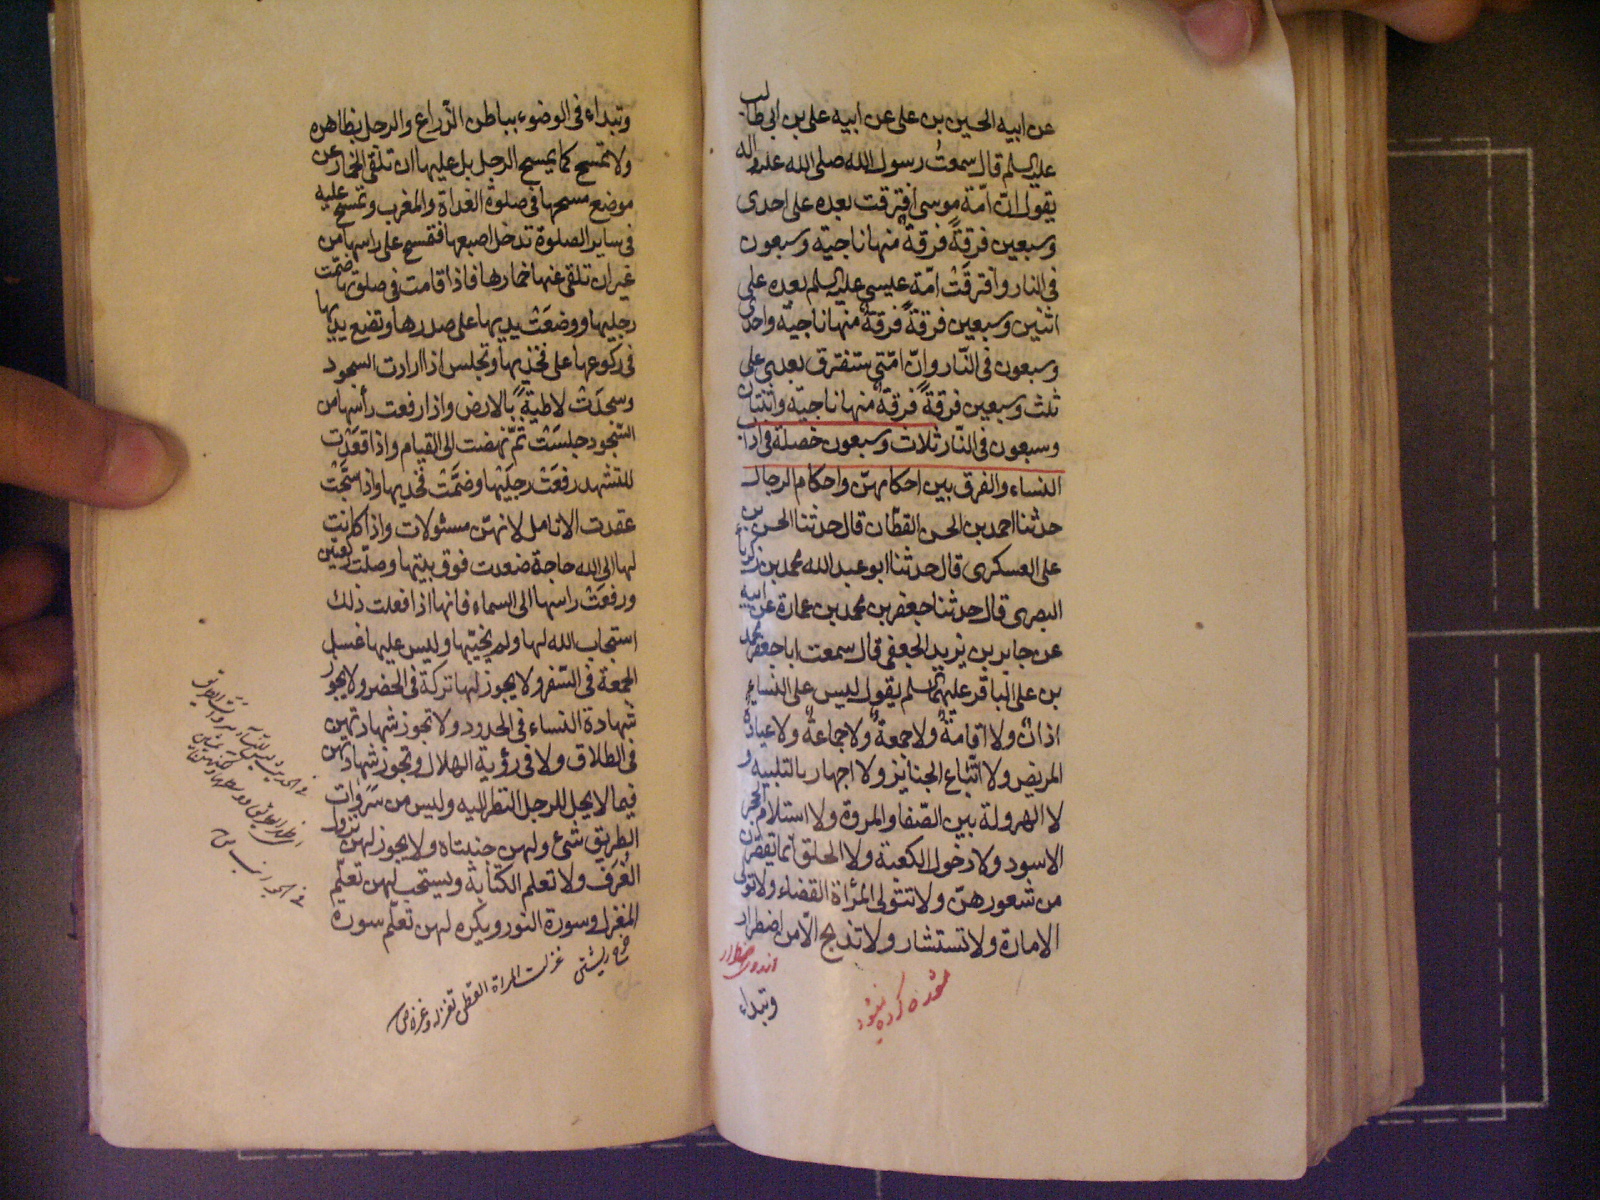 عن ابيه الحسين بن على عن ابيه على بن ابى طالب
عليه السلم قال سمعت رسول الله صلى الله عليه واله
يقول انّ امّة موسى افترقت بعده على احدى
وسبعين فرقةً فرقةٌ منها ناجية وسبعون
فى النار وافترقَتْ امّة عيسى عليه السلم بعده على
اثنين وسبعين فرقةً فرقةٌ منها ناجيّة واحدى
وسبعون فى النّار وانّ امّتى ستفترق بعدى على
ثلث وسبعين فرقةً فرقةٌ منها ناجيّة واثنتان
وسبعون فى النّار ثلاث وسبعون خصلة فى اداب
النساء والفرق بين احكامهنّ واحكام الرجال
حدثنا احمد بن الحسن القطّان قال حدثنا الحسن بن
على العسكرى قال حدثنا ابو عبد الله محمد بن زكريا
البصرى قال حدثنا جعفر بن محمد بن عمارة عن ابيه
عن جابر بن يزيد الجعفى قال سمعت ابا جعفر محمد
بن على الباقر عليهما السلم يقول ليس على النساء
اذانٌ ولا اقامةٌ ولا جمعةٌ ولا جماعةٌ ولا عيادة
المريض ولا اتّباع الجنايز ولا اجهار بالتلبيه و
لا الهرولة بين الصّفا والمروة ولا استلام الحجر
الاسود ولا دخول الكعبة ولا الحلق انما يقصّرن
من شعورهنّ ولا تتولى المرأة القضاء ولا تولى
الامارة ولا تستشار ولا تذبح الّا من اضطرار
وتبداء
وتبداء فى الوضوء بباطن الذّراع والرجل بظاهره
ولا تمسح كما يمسح الرجل بل عليها ان تلقى الخمار عن
موضع مسحها فى صلوة الغداة والمغرب وتمسح عليه
فى ساير الصلوة تدخل اصبعها فتمسح على راسها من
غير ان تلقى عنها خمارها فاذا قامت فى صلوتها ضمّت
رجليها ووضعَتْ يديها على صدرها وتضع يديها
فى ركوعها على فخذيها وتجلس اذا ارادت السجود
وسجدَتْ لاطيةً بالارض واذا رفعت رأسها من
السّجود جلسَتْ ثمّ نهضت الى القيام واذا قعدَت
للتشهد رفعَتْ رجليها وضمَّتْ فخذيها واذا سبّحَتْ
عقدت الانامل لانهنّ مسئولات واذا كانت
لها الى الله حاجة صعدت فوق بيتها وصلّت ركعتين
ورفعَتْ راسها الى السماء فانها اذا فعلت ذلك
استجاب الله لها ولم يخيّبها وليس عليها غسل
الجمعة فى السّفر ولا يجوز لها تركه فى الحضر ولا يجوز
شهادة النساء فى الحدود ولا تجوز شهادتهن
فى الطلاق ولا فى رؤية الهلال وتجوز شهادتهن
فيما لا يحل للرجل النظر اليه وليس من سَرَوات
الطريق شئ ولهن جنبتاه ولا يجوز لهن نزول
الغُرَف ولا تعلم الكتابة ويستحب لهن تعلّم
المغزل وسورة النور ويكره لهن تعلّم سورة
غزلت المراة القطن تغزله وغزه ص